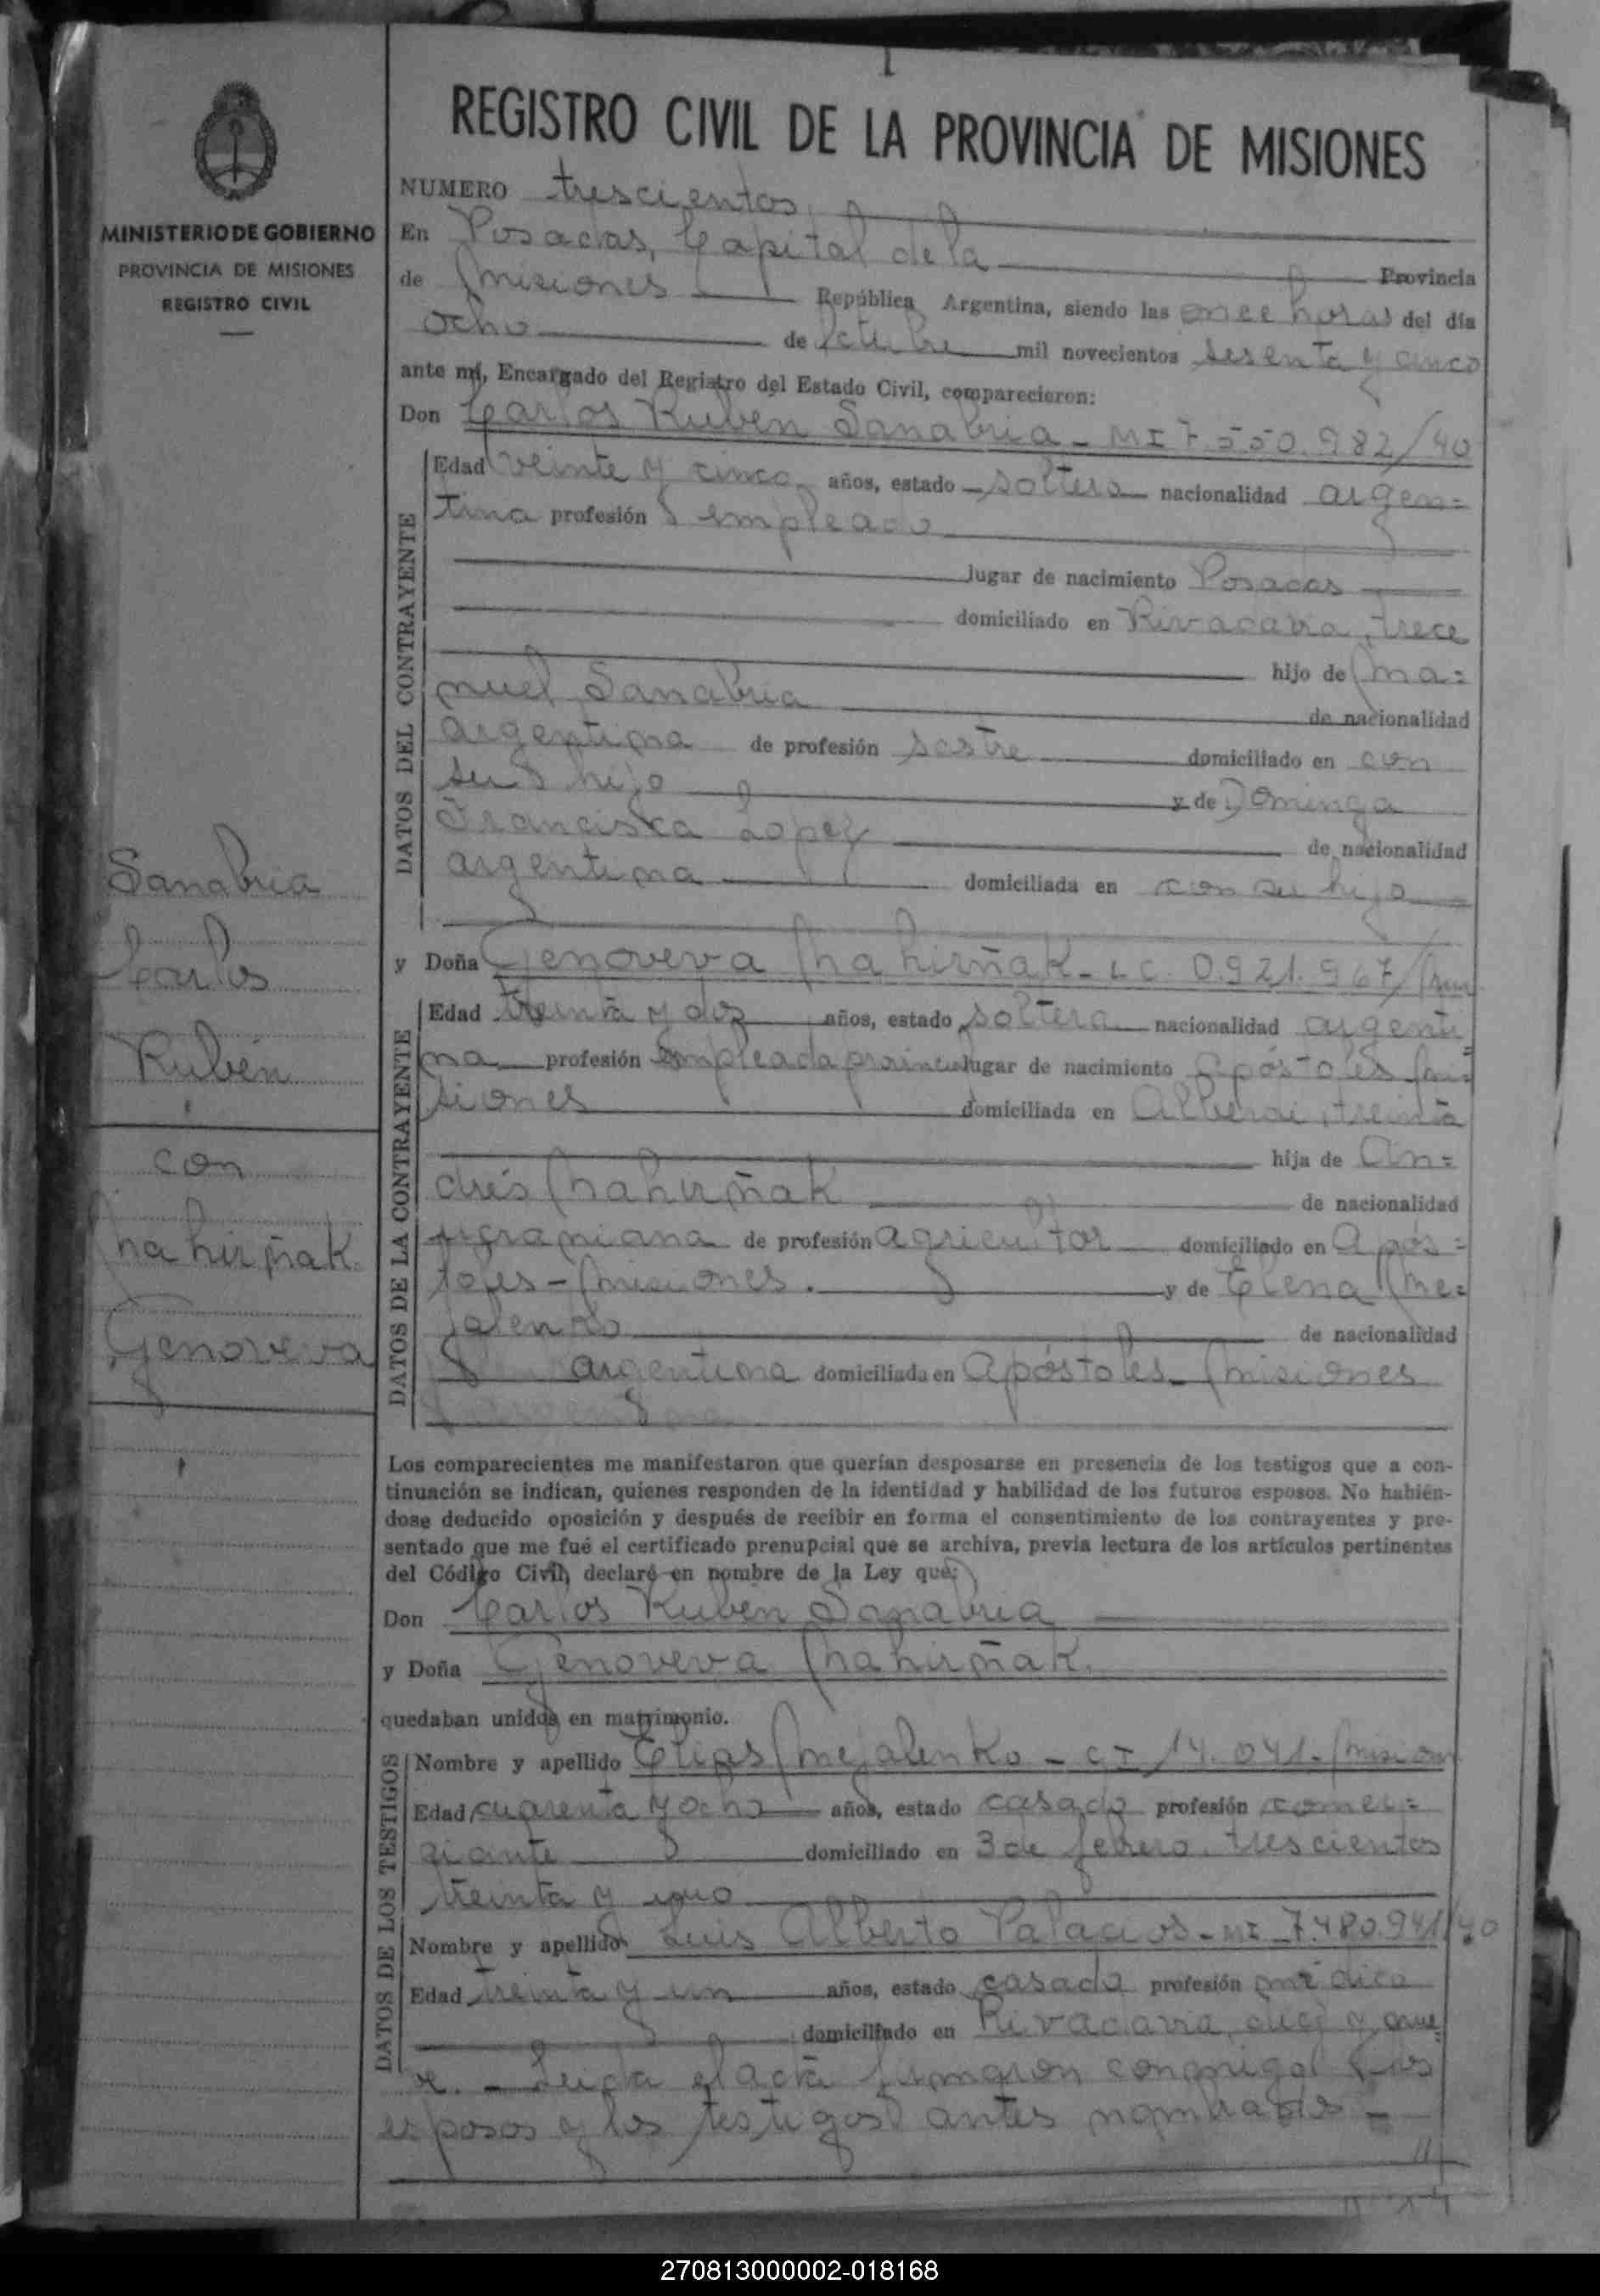 MINISTERIO DE GOBIERNO
PROVINCIA DE MISIONES
REGISTRO CIVIL
Sanabria
Carlos
Rubén
con
Mahirñak
Genoveva
REGISTRO CIVIL DE LA PROVINCIA DE MISIONES
NUMERO trescientos
En Posadas, Capital de la Provincia
de Misiones República Argentina, siendo las once horas del día
ocho de Octubre mil novecientos sesenta y cinco
ante mí, Encargado del Registro del Estado Civil, comparecieron:
Don Carlos Rubén Sanabria - MI 7.550.982/40
DATOS DEL CONTRAYENTE
Edad veinte y cinco años, estado soltero nacionalidad argen=
tina profesión empleado
lugar de nacimiento Posadas
domiciliado en Rivadavia, trece
hijo de Ma=
nuel Sanabria de nacionalidad
argentina de profesión sastre domiciliado en con
su hijo y de Dominga
Francisca Lopez de nacionalidad
argentina domiciliada en con su hijo
y Doña Genoveva Mahirñak - LC. 0.921.967/
DATOS DE LA CONTRAYENTE
Edad treinta y dos años, estado soltera nacionalidad argenti=
na profesión Empleada lugar de nacimiento Apóstoles Mi=
siones domiciliada en Alberdi, treinta
hija de An=
drés Mahirñak de nacionalidad
ucraniana de profesión agricultor domiciliado en Após=
toles - Misiones. y de Elena Me=
jalenko de nacionalidad
argentina domiciliada en Apóstoles - Misiones
Los comparecientes me manifestaron que querían desposarse en presencia de los testigos que a con-
tinuación se indican, quienes responden de la identidad y habilidad de los futuros esposos. No habién-
dose deducido oposición y después de recibir en forma el consentimiento de los contrayentes y pre-
sentado que me fué el certificado prenupcial que se archiva, previa lectura de los artículos pertinentes
del Código Civil, declaré en nombre de la Ley que:
Don Carlos Rubén Sanabria
y Doña Genoveva Mahirñak.
quedaban unidos en matrimonio.
DATOS DE LOS TESTIGOS
Nombre y apellido Elias Mejalenko - CI 14.041 - Mision
Edad cuarenta y ocho años, estado casado profesión comer=
ciante domiciliado en 3 de febrero, trescientos
treinta y uno
Nombre y apellido Luis Alberto Palacios - MI 7.480.941/40
Edad treinta y un años, estado casado profesión médico
domiciliado en Rivadavia, diez y nue=
ve. - Leida el acta firmaron conmigo los
esposos y los testigos antes nombrados -
270813000002-018168